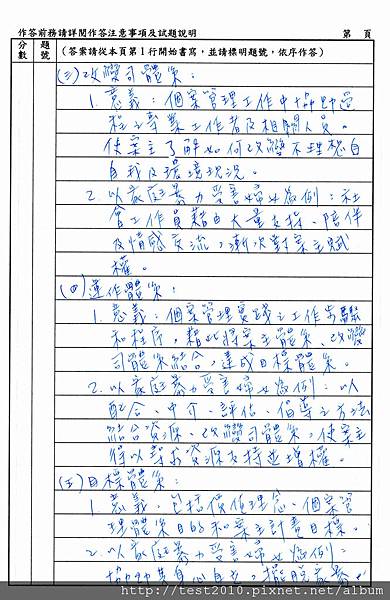 作答前務請詳閱作答注意事項及試題說明 第 頁
分數 題號 (答案請從本頁第1行開始書寫，並請標明題號，依序作答)
(三)改變司體系：
1.意義：個案管理工作中協助過
程之專業工作者及相關人員。
使案主了解如何改變不理想自
自我及環境現況。
2.以家庭暴力受害婦女為例：社
會工作員藉由大量支持、陪伴
及情感交流，漸次對案主賦
權。
(四)運作體系：
1.意義：個案管理實務之工作步驟
和程序，藉此將案主體系、改變
司體系結合，達成目標體系。
2.以家庭暴力受害婦女為例：以
配合、中介、評估、倡導之方法
結合資源、改變司體系，使案主
得以尋求資源支持並增權。
(五)目標體系：
1.意義：包括價值理念、個案管
理體系目的和案主計畫目標。
2.以家庭暴力受害婦女為例：
協助其身心自主，擺脫家暴
http://test2010.pixnet.net/album